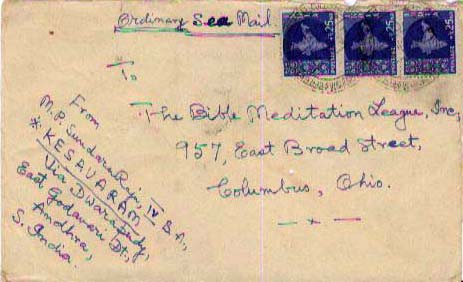 Ordinary Sea Mail.
25 NP
POSTAGE
25 NP
POSTAGE
25 NP
POSTAGE
To
The Bible Meditation League, Inc,
957, East Broad Street,
Columbus, Ohio.
From
M.P. Sundara Raju, IV B.A.,
* KESAVARAM
Via DWARAPUDY,
East Godavari Dt.,
Andhra,
S. India.